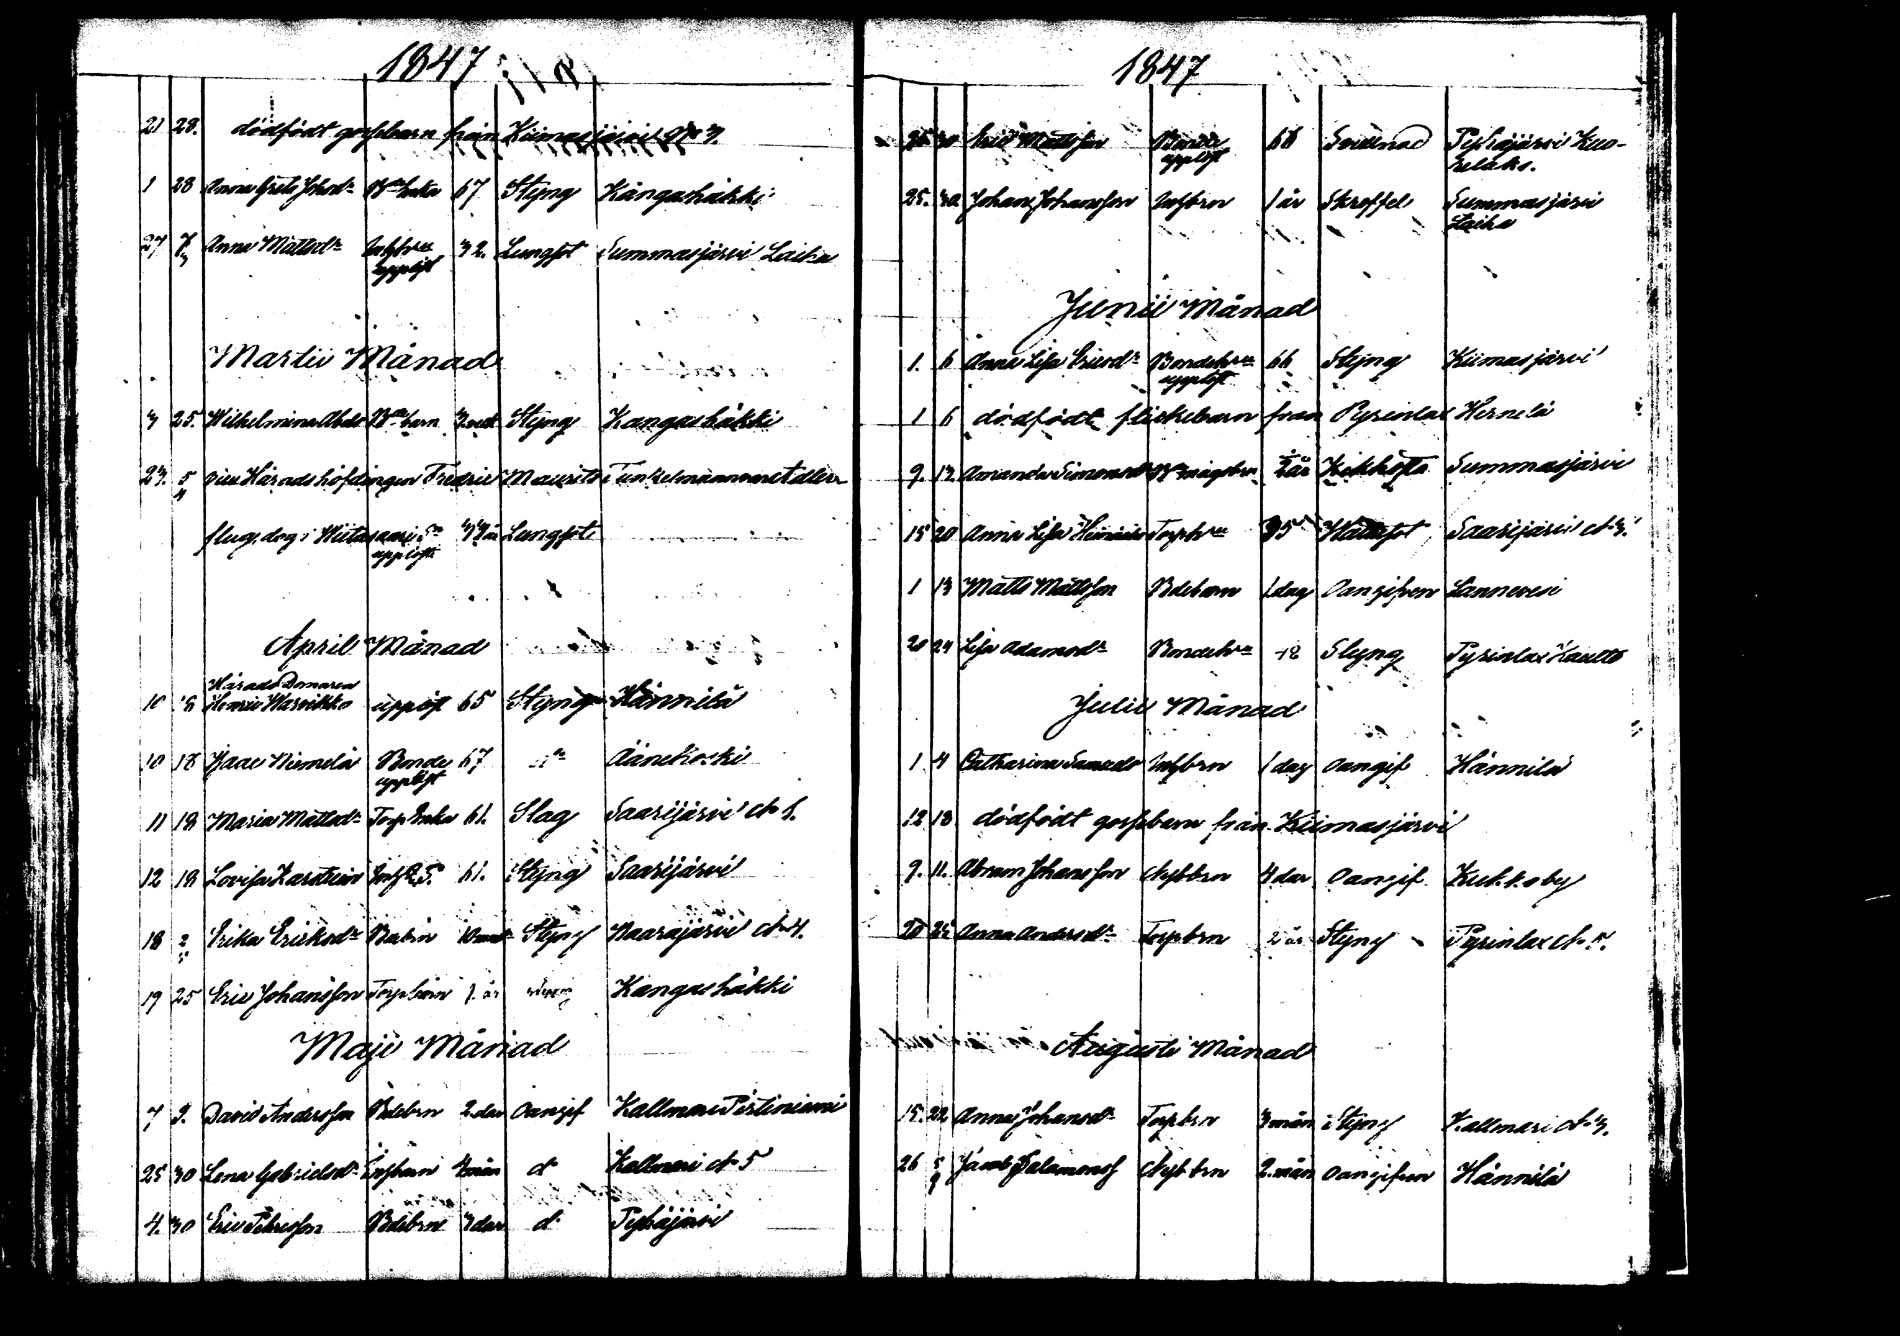 1847
21 28. dödfödt gossebarn från Kiimasjärvi No 3.
1 28 Anna Greta Johsdr Bde Enka 67 Styng Kangashäkki
27 7/3 Anna Mattsdr Inhhru upplöst 32. Lungsot Summasjärvi Laika
Martii Månad
3 25. Wilhelmina Abrdr Bde barn 3 vek Styng Kangashäkki
23. 5/4 vice Häradshöfdingen Fredric Maurits
afled i Wiitasaari Sn upplöst år Lungsot
April Månad
Härads Domaren
10 18 Henric Warvikko upplöst 65 Styng Hännilä
10 18 Isaac Niemelä Bonde upplöst 67 do Äänekoski
11 18 Maria Mattsdr Torp Enka 61. Slag Saarijärvi No 1.
12 18 Lovisa Karstein 61. Styng Saarijärvi
18 2/5 Erika Ericksdr Bdebrn Styng No 4.
19 25 Eric Johansson Torpbarn 1 år Kangashäkki
Maji Månad
7 9. David Andersson Bdebrn 2 dar Oangif Kallmari
25 30 Lena Gabrielsdr Inhbarn 4 mån do Kallmari No 5
4. 30 Eric Petersson Bdebrn 3 dar do Pyhäjärvi
1847
25 30 Eric Mattsson Bonde upplöst 66 Pyhäjärvi Kuo-
helaks.
25. 30 Johan Johansson Inhbrn 1 år Skroffel Summasjärvi
Laika
Junii Månad
1. 6 Anna Lisa Ericsdr Bondehru upplöst 66 Styng Kiimasjärvi
1 6 dödfödt flickebarn från Pyrinlax Hernelä
9. 13. Amanda Simonsdr Bde mågsbrn ½ år Kikhosta Summasjärvi
15 20 Anna Lisa Torphru 35 Saarijärvi No 3.
1 13 Matts Mattsson Bdebarn 1 dag Oangifven Lannevesi
20 24 Lisa Adamsdr Bondehru Styng Pyrinlax Kautto
Julii Månad
1 4 Catharina Inhbrn 1 dag Oangif Hännilä
12 18 dödfödt gossebarn från Kiimasjärvi
9. 11. Abram Johansson Nybbrn 4 dar Oangif Kukkoby
20 25 Anna Andersdr Torpbrn 2 år Styng Pyrinlax No 5.
Augusti Månad
15. 22 Anna Johansdr Torpbrn 3 mån Styng Kallmari No 3.
26 5/9 Jacob Salomonss Nybbrn 2. mån Oangifven Hännilä